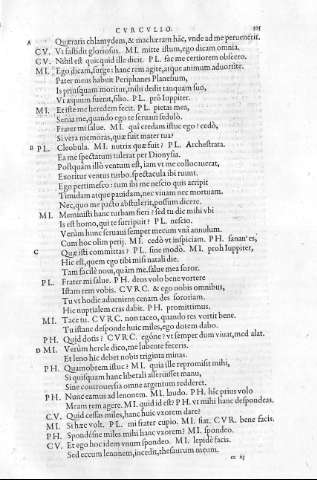 CVRCVLIO.
A Quæras chlamydem, & machæram hãc, vnde ad me peruenerit.
CV. Vt fastidit gloriosus. MI. mitte istum, ego dicam omnia.
CV. Nihil est quicquid ille dicit. PL. fac me certiorem obsecro.
MI. Ego dicam, surge: hanc rem agite, atque animum aduortite.
Pater meus habuit Periphanes Planesium,
Is priusquam moritur, mihi dedit tanquam suo,
Vt æquum fuerat, filio. PL. prô Iuppiter.
MI. Et iste me heredem fecit. PL. pietas mea,
Serua me, quando ego te seruaui sedulò.
Frater mi salue. MI. qui credam istuc ego? cedò,
Si vera memoras, quæ fuit mater tua?
B PL. Cleobula. MI. nutrix quæ fuit? PL. Archestrata.
Ea me spectatum tulerat per Dionysia.
Postquàm illò ventum est, iam vt me collocauerat,
Exoritur ventus turbo. spectacula ibi ruunt.
Ego pertimesco: tum ibi me nescio quis arripit
Timidam atque pauidam, nec viuam nec mortuam.
Nec, quo me pacto abstulerit, possum dicere.
MI. Memini istā hanc turbam fieri: sed tu dic mihi vbi
Is est homo, qui te surripuit? PL. nescio.
Verùm hunc seruaui semper mecum vnà annulum.
Cum hoc olim perij. MI. cedò vt inspiciam. PH. sanan' es,
C Quæ isti committas? PL. sine modò. MI. proh Iuppiter,
Hic est, quem ego tibi misi natali die.
Tam facilè noui, quàm me. salue mea soror.
PL. Frater mi salue. PH. deos volo bene vortere
Istam rem vobis. CVRC. & ego vobis omnibus,
Tu vt hodie adueniens cenam des sororiam.
Hic nuptialem cras dabit. PH. promittimus.
MI. Tace tu. CVRC. non taceo, quando res vortit bene.
Tu istanc desponde huic miles, ego dotem dabo.
PH. Quid dotis? CVRC. egóne? vt semper dum viuat, me alat.
D MI. Verùm hercle dico, me lubente feceris.
Et leno hic debet nobis triginta minas.
PH. Quamobrem istuc? MI. quia ille repromisit mihi,
Si quisquam hanc liberali asseruisset manu,
Sine controuersia omne argentum redderet.
PH. Nunc eamus ad lenonem. MI. laudo. PH. hîc prius volo
Meam rem agere. MI. quid id est? PH. vt mihi hanc despondeas.
CV. Quid cessas miles, hanc huic vxorem dare?
MI. Si hæc volt. PL. mi frater cupio. MI. fiat. CVR. bene facis.
PH. Spondésne miles mihi hanc vxorem? MI. spondeo.
CV. Et ego hoc idem vnum spondeo. MI. lepidè facis.
Sed eccum lenonem, incedit, thesaurum meum.